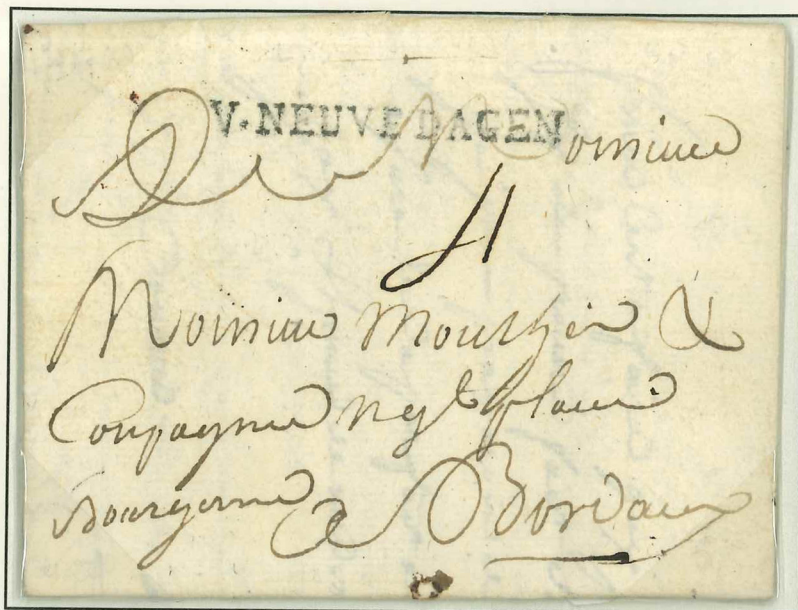 V. NEUVE DAGEN
A Monsieur
4
Monsieur Mouthier &
Compagnie negt place
Bourgogne a Bordeaux